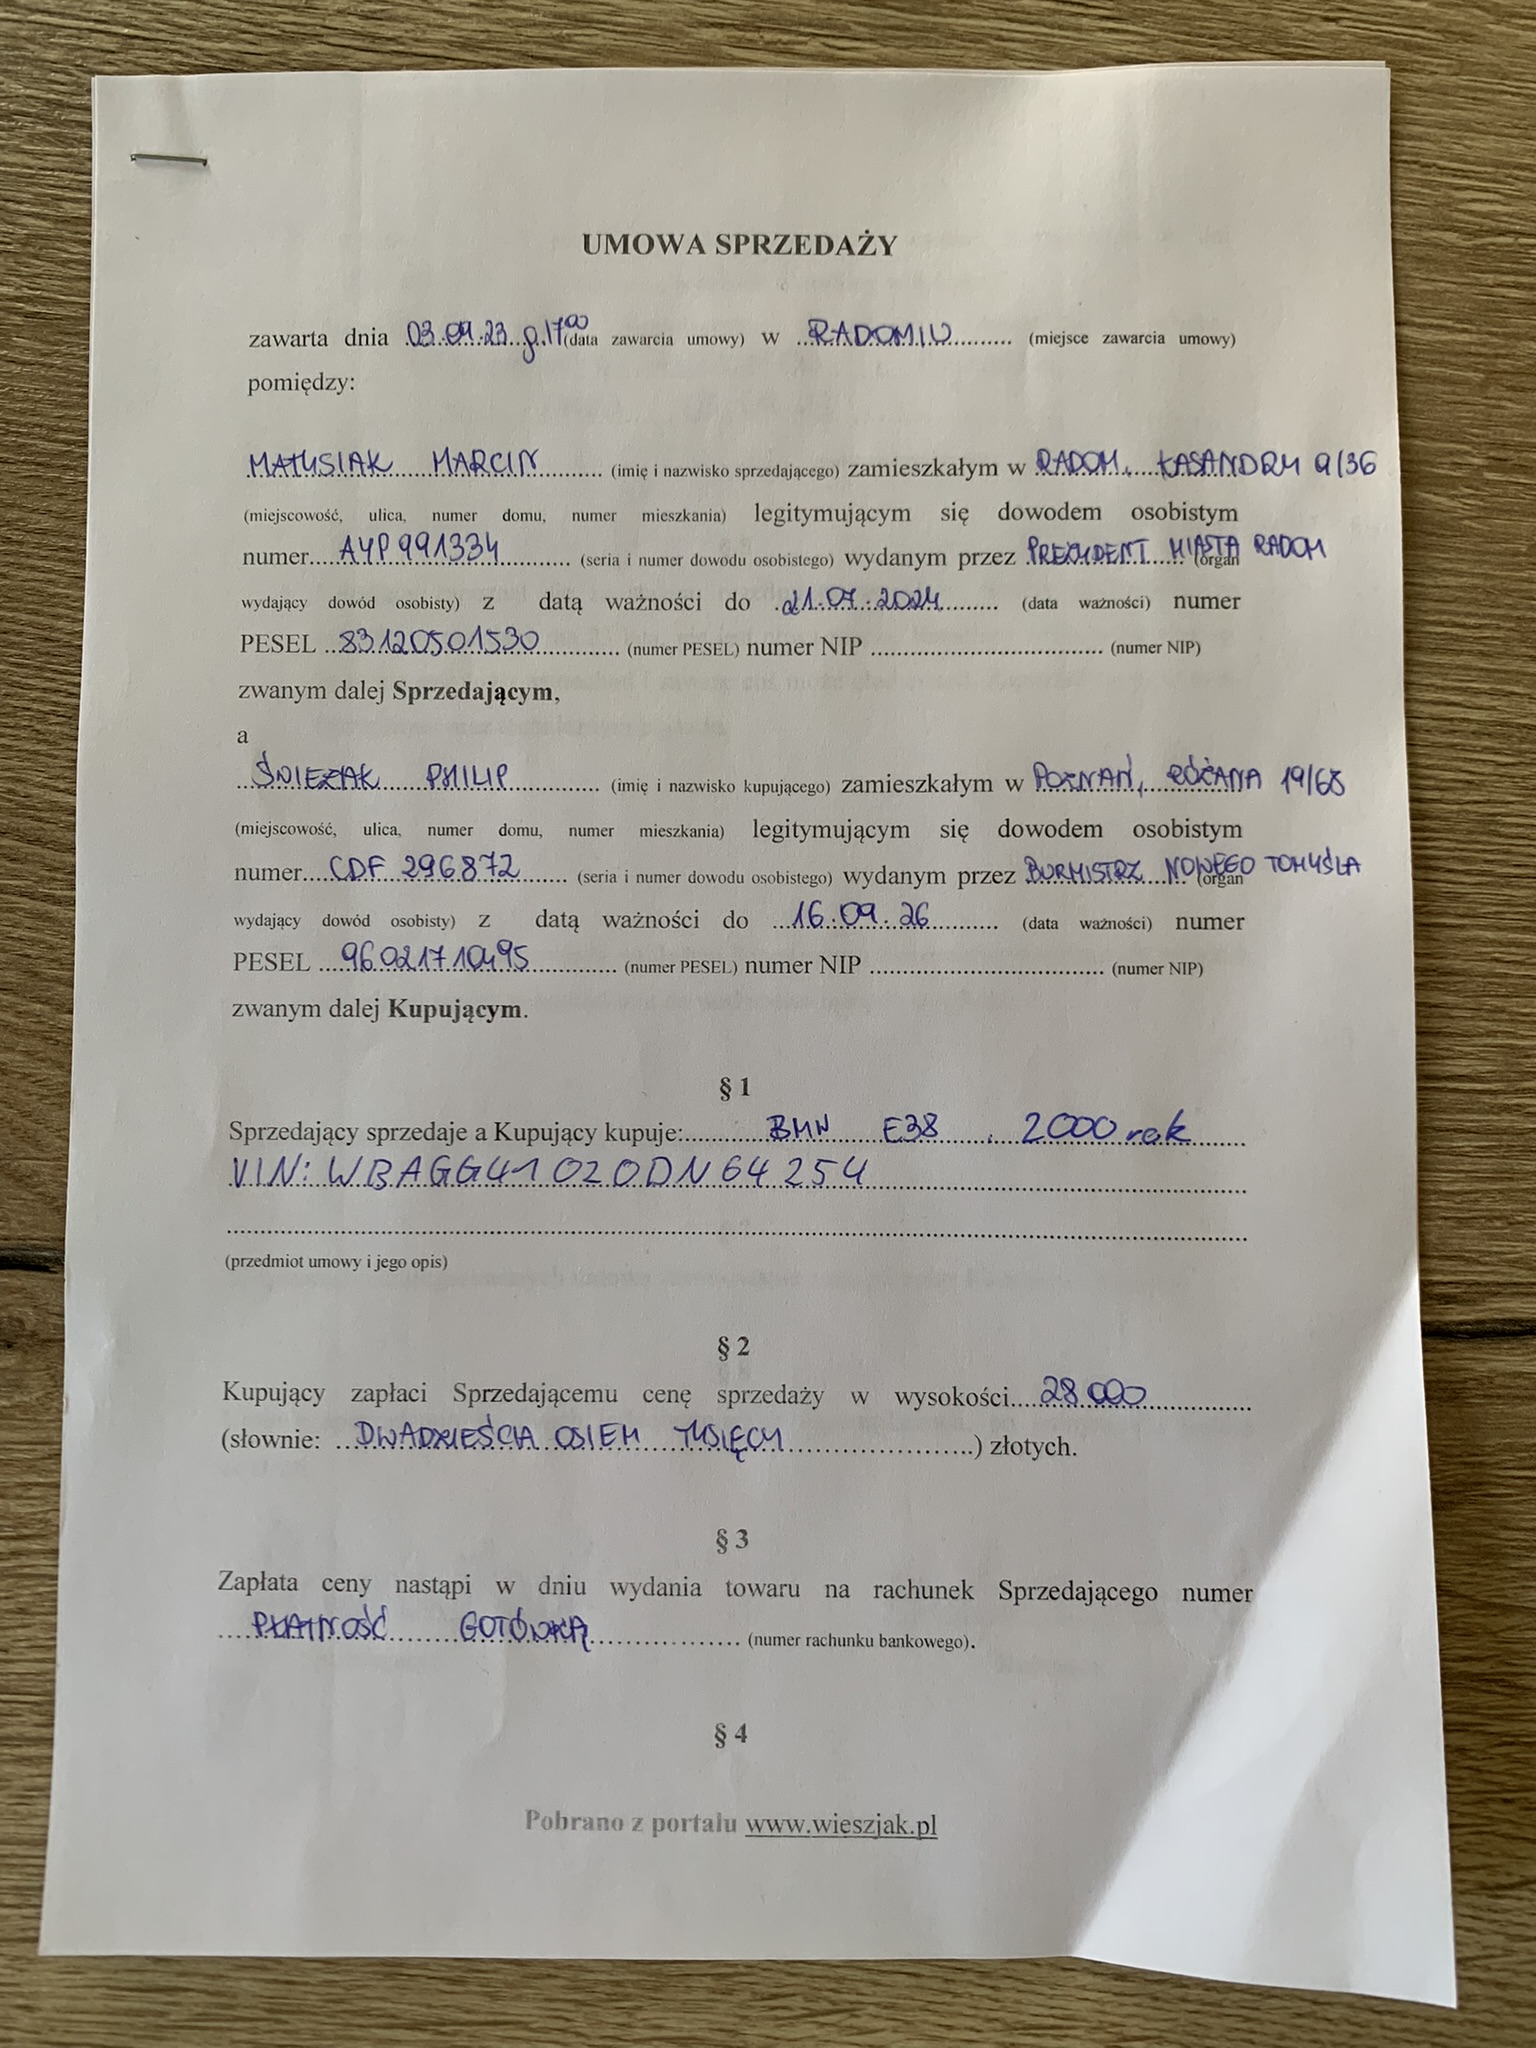 UMOWA SPRZEDAŻY
zawarta dnia 03.09.23 g.17⁰⁰ (data zawarcia umowy) w RADOMIU (miejsce zawarcia umowy)
pomiędzy:
MATUSIAK MARCIN (imię i nazwisko sprzedającego) zamieszkałym w RADOM, KASANDRY 9/36
(miejscowość, ulica, numer domu, numer mieszkania) legitymującym się dowodem osobistym
numer AYP991334 (seria i numer dowodu osobistego) wydanym przez PREZYDENT MIASTA RADOM (organ
wydający dowód osobisty) z datą ważności do 21.07.2024 (data ważności) numer
PESEL 83120501530 (numer PESEL) numer NIP (numer NIP)
zwanym dalej Sprzedającym,
a
ŚNIEŻAK PHILIP (imię i nazwisko kupującego) zamieszkałym w POZNAŃ, RÓŻANA 19/68
(miejscowość, ulica, numer domu, numer mieszkania) legitymującym się dowodem osobistym
numer CDF 296872 (seria i numer dowodu osobistego) wydanym przez BURMISTRZ NOWEGO TOMYŚLA (organ
wydający dowód osobisty) z datą ważności do 16.09.26 (data ważności) numer
PESEL 96021710495 (numer PESEL) numer NIP (numer NIP)
zwanym dalej Kupującym.
§ 1
Sprzedający sprzedaje a Kupujący kupuje: BMW E38 . 2000 rok
VIN: WBAGG41020DN64254
(przedmiot umowy i jego opis)
§ 2
Kupujący zapłaci Sprzedającemu cenę sprzedaży w wysokości 28 000
(słownie: DWADZIEŚCIA OSIEM TYSIĘCY) złotych.
§ 3
Zapłata ceny nastąpi w dniu wydania towaru na rachunek Sprzedającego numer
PŁATNOŚĆ GOTÓWKĄ (numer rachunku bankowego).
§ 4
Pobrano z portalu www.wieszjak.pl